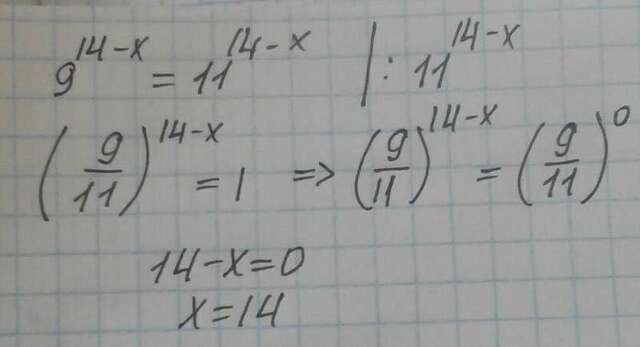 9^{14-x} = 11^{14-x} | : 11^{14-x}
(9/11)^{14-x} = 1 => (9/11)^{14-x} = (9/11)^0
14-x=0
x=14